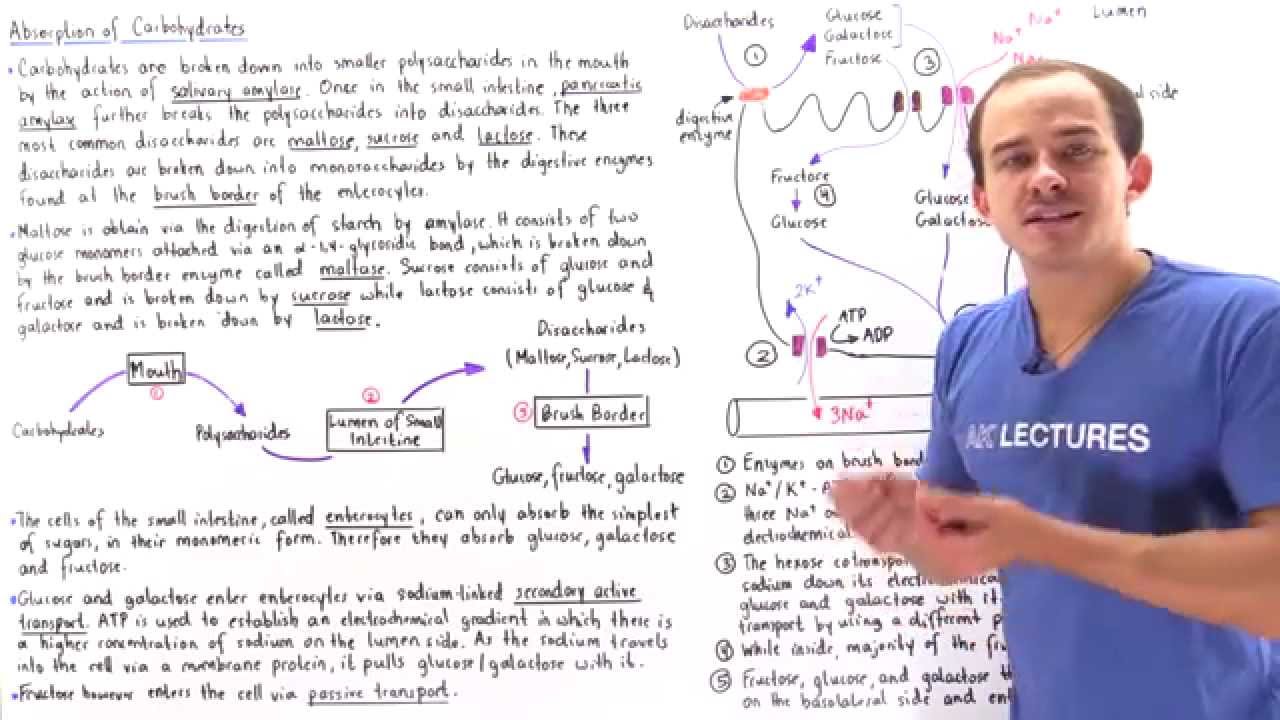 Absorption of Carbohydrates
• Carbohydrates are broken down into smaller polysaccharides in the mouth
by the action of salivary amylase. Once in the small intestine, pancreatic
amylase further breaks the polysaccharides into disaccharides. The three
most common disaccharides are maltose, sucrose and lactose. These
disaccharides are broken down into monosaccharides by the digestive enzymes
found at the brush border of the enterocytes.
• Maltose is obtain via the digestion of starch by amylase. It consists of two
glucose monomers attached via an α-1,4-glycosidic bond, which is broken down
by the brush border enzyme called maltase. Sucrose consists of glucose and
fructose and is broken down by sucrose while lactose consists of glucose &
galactose and is broken down by lactose.
Mouth
①
Carbohydrates
Polysaccharides
②
Lumen of Small
Intestine
Disaccharides
(Maltose, Sucrose, Lactose)
③ Brush Border
Glucose, fructose, galactose
• The cells of the small intestine, called enterocytes, can only absorb the simplest
of sugars, in their monomeric form. Therefore they absorb glucose, galactose
and fructose.
• Glucose and galactose enter enterocytes via sodium-linked secondary active
transport. ATP is used to establish an electrochemical gradient in which there is
a higher concentration of sodium on the lumen side. As the sodium travels
into the cell via a membrane protein, it pulls glucose/galactose with it.
• Fructose however enters the cell via passive transport.
Disaccharides
①
Glucose
Galactose
Fructose
③
Na+
Na+
Na
Lumen
side
digestive
enzyme
Fructose
④
Glucose
Glucose
Galactose
2K+
ATP
ADP
②
3Na+
① Enzymes on brush bord
② Na+/K+-
three Na+
electrochemical
③ The hexose cotransp
sodium down its
glucose and galactose with it.
transport by using a different p
④ While inside, majority of the fru
⑤ Fructose, glucose, and galactose th
on the basolateral side and ent
AK LECTURES